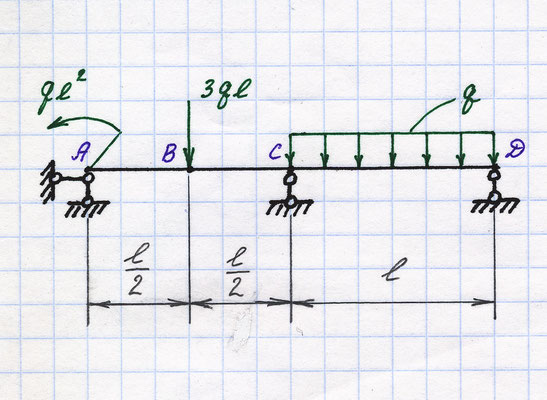 ql²
3ql
q
A
B
C
D
l/2
l/2
l